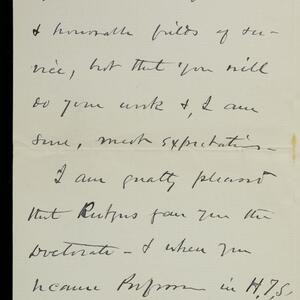 & honorable fields of ser-
vice, but that you will
do your work &, I am
sure, meet expectation –
I am greatly pleased
that Rutgers gave you the
Doctorate – & when you
became Professor in H.T.S.